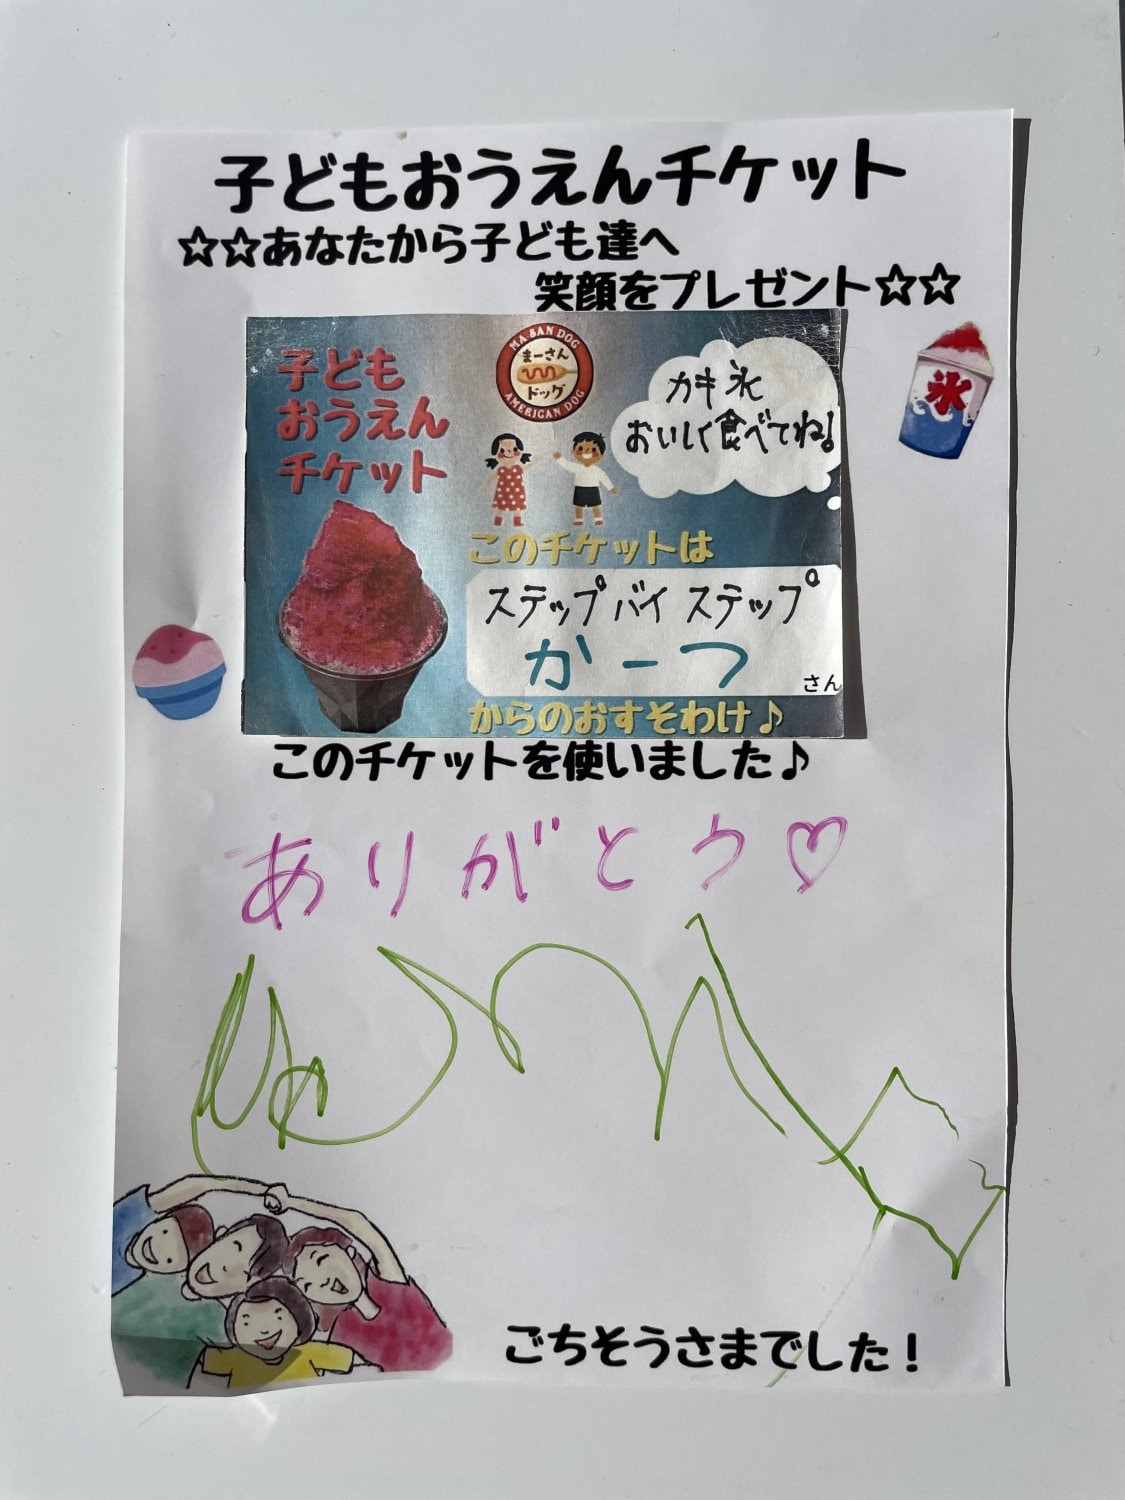 子どもおうえんチケット
☆☆あなたから子ども達へ
笑顔をプレゼント☆☆
氷
子ども
おうえん
チケット
MA SAN DOG
まーさん
ドッグ
AMERICAN DOG
カキ氷
おいしく食べてね!
このチケットは
ステップバイステップ
かーつ
さん
からのおすそわけ♪
このチケットを使いました♪
ありがとう♡
ごちそうさまでした!